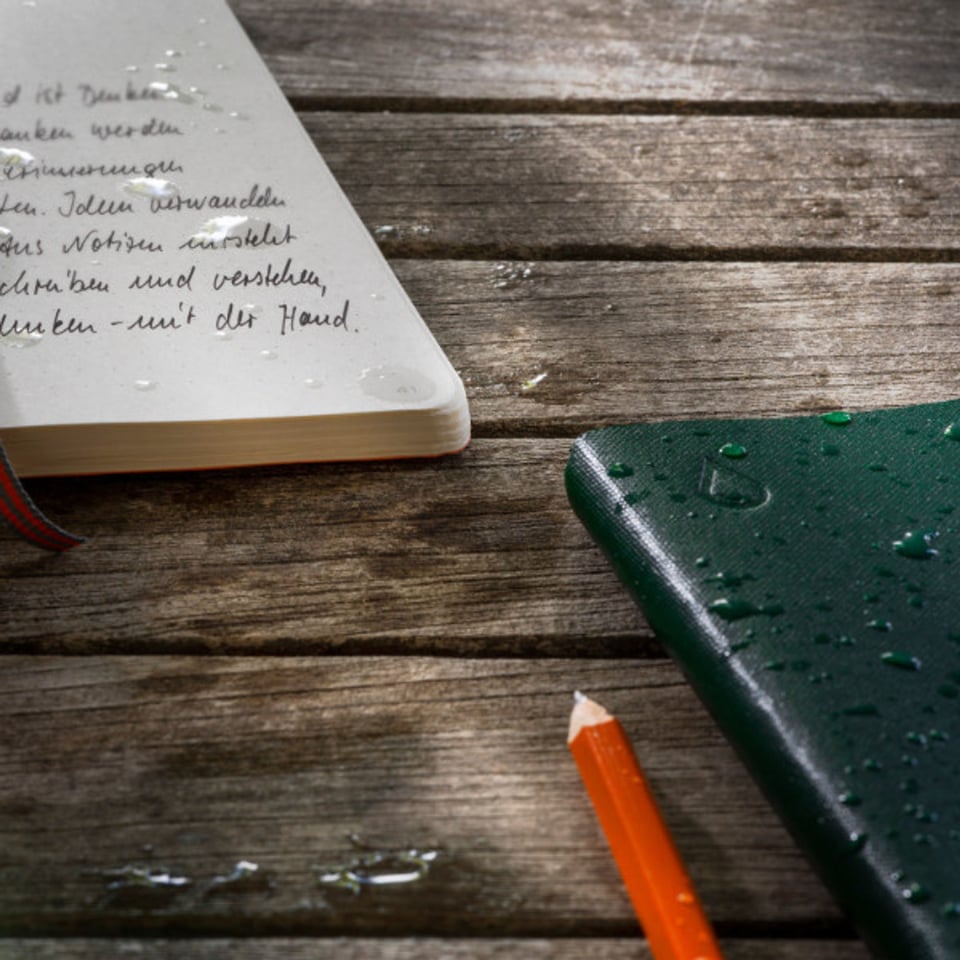 d ist Denken
anken werden
Erinnerungen
ten. Ideen verwandeln
Aus Notizen entsteht
chreiben und verstehen,
denken – mit der Hand.